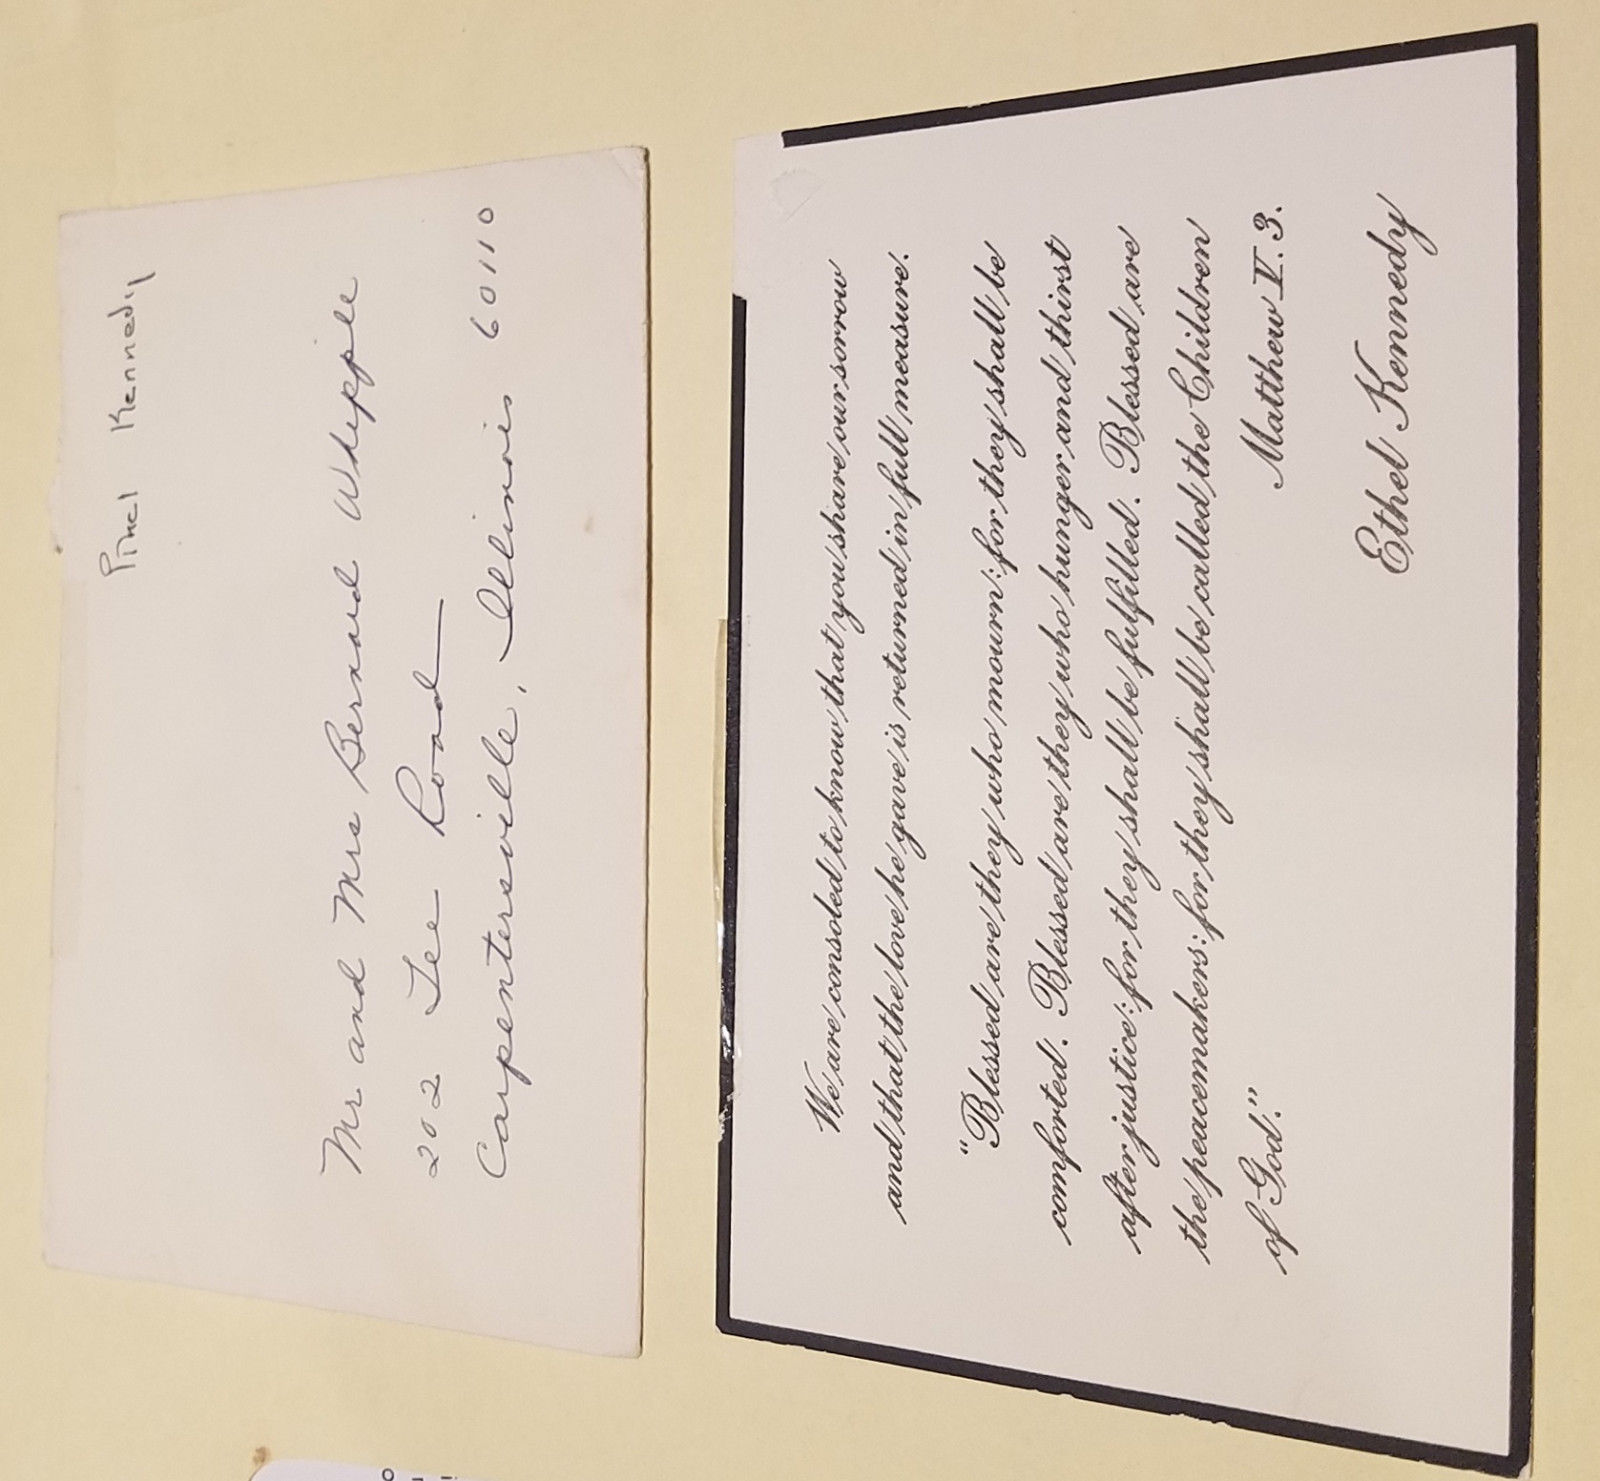 Kennedy
Mr and Mrs Bernard Whipple
202 Lee Road
Carpentersville, Illinois 60110
We are consoled to know that you share our sorrow
and that the love he gave is returned in full measure.
"Blessed are they who mourn: for they shall be
comforted. Blessed are they who hunger and thirst
after justice: for they shall be fulfilled. Blessed are
the peacemakers: for they shall be called the Children
of God."
Matthew V. 3.
Ethel Kennedy